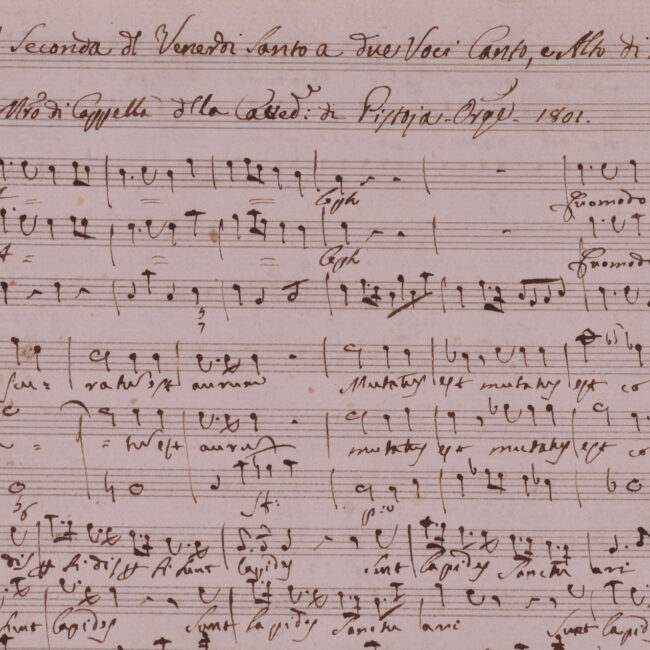 Seconda dl Venerdi Santo a due Voci Canto, e Alto di
Mro di Cappella dlla Catted: di Pistoja - Orge - 1801.
Aleph
Quomodo
Aleph
Quomodo
5
7
scu = ratū est aurum Mutatus est mutatus est co
= = tū est aurum mutatus est mutatus est co
56
p:o
lapides sunt lapides Sanctu arii
sunt lapides sunt lapides Sanctu arii sunt lapi